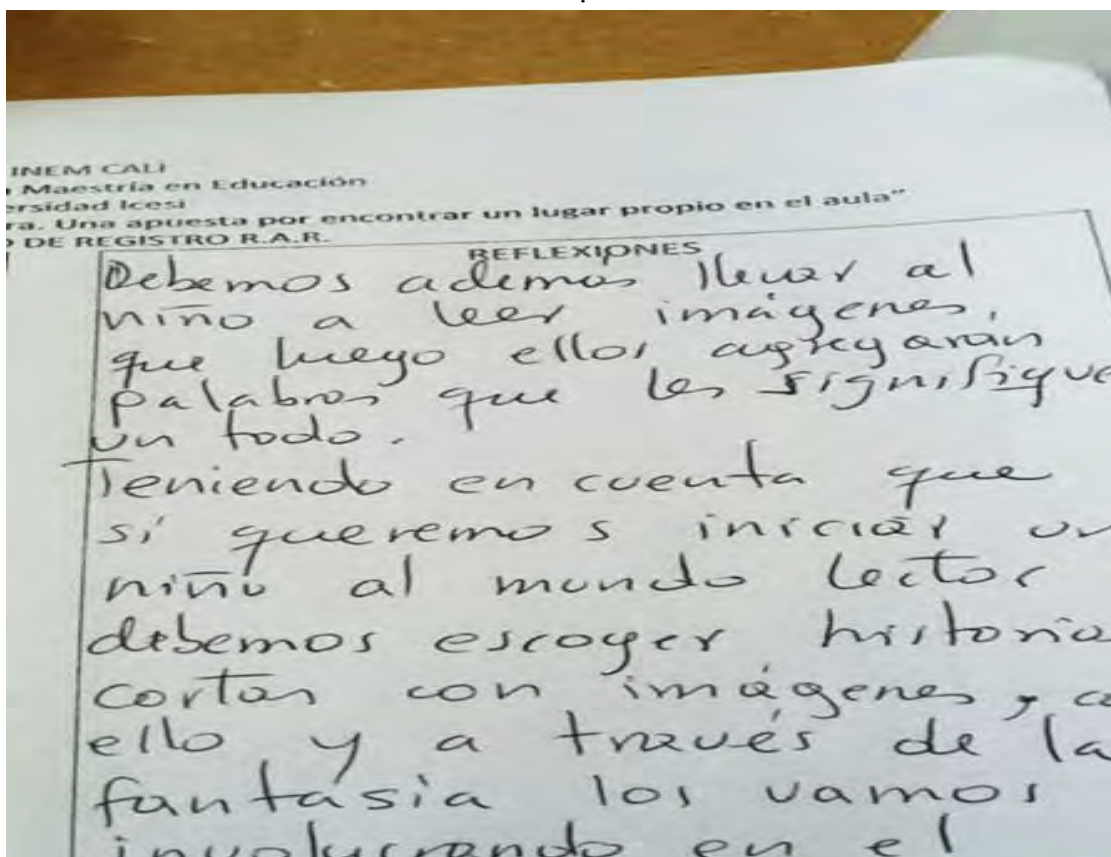 INEM CALI
Maestría en Educación
ersidad Icesi
ra. Una apuesta por encontrar un lugar propio en el aula"
DE REGISTRO R.A.R.
REFLEXIONES
Debemos ademas llevar al
niño a leer imágenes,
que luego ellos agregaran
palabras que les signifique
un todo.
Teniendo en cuenta que
si queremos iniciar un
niño al mundo lector
debemos escoger historia
cortas con imágenes, co
ello y a través de la
fantasia los vamos
involucrando en el